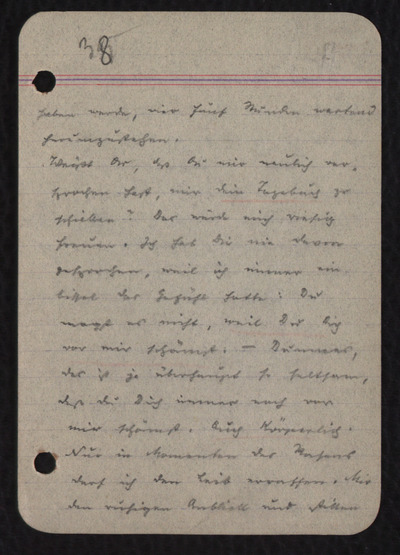 38
haben werde, vier fünf Stunden wartend
herumzustehen.
Weißt Du, daß Du mir neulich ver-
sprochen hast, mir dein Tagebuch zu
schicken? Das würde mich riesig
freuen. Ich hab Dir nie davon
gesprochen, weil ich immer ein
bissel das Gefühl hatte: Du
magst es nicht, weil Du Dich
vor mir schämst. — Dummes,
das ist ja überhaupt so seltsam,
daß du Dich immer noch vor
mir schämst. Auch körperlich.
Nur in Momenten des
darf ich den Leib erraffen. Mir
den ruhigen Anblick und